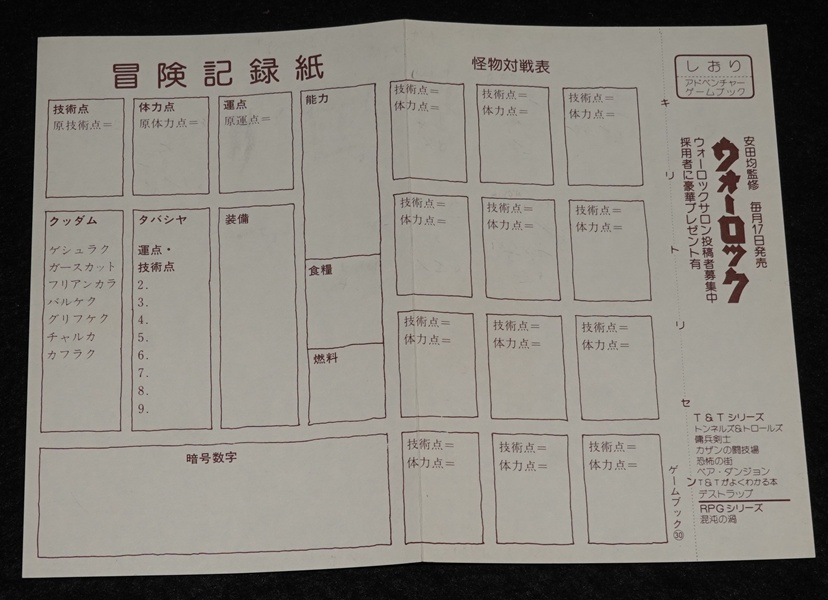 冒険記録紙
技術点
原技術点＝
体力点
原体力点＝
運点
原運点＝
能力
クッダム
ゲシュラク
ガースカット
フリアンカラ
バルケク
グリフケク
チャルカ
カフラク
タバシヤ
運点・
技術点
2.
3.
4.
5.
6.
7.
8.
9.
装備
食糧
燃料
暗号数字
怪物対戦表
技術点＝
体力点＝
技術点＝
体力点＝
技術点＝
体力点＝
技術点＝
体力点＝
技術点＝
体力点＝
技術点＝
体力点＝
技術点＝
体力点＝
技術点＝
体力点＝
技術点＝
体力点＝
技術点＝
体力点＝
技術点＝
体力点＝
技術点＝
体力点＝
キリトリセン
ゲームブック㉚
しおり
アドベンチャー
ゲームブック
安田均監修 毎月17日発売
ウォーロック
ウォーロックサロン投稿者募集中
採用者に豪華プレゼント有
T＆Tシリーズ
トンネルズ＆トロールズ
傭兵剣士
カザンの闘技場
恐怖の街
ベア・ダンジョン
T＆Tがよくわかる本
デストラップ
RPGシリーズ
混沌の渦